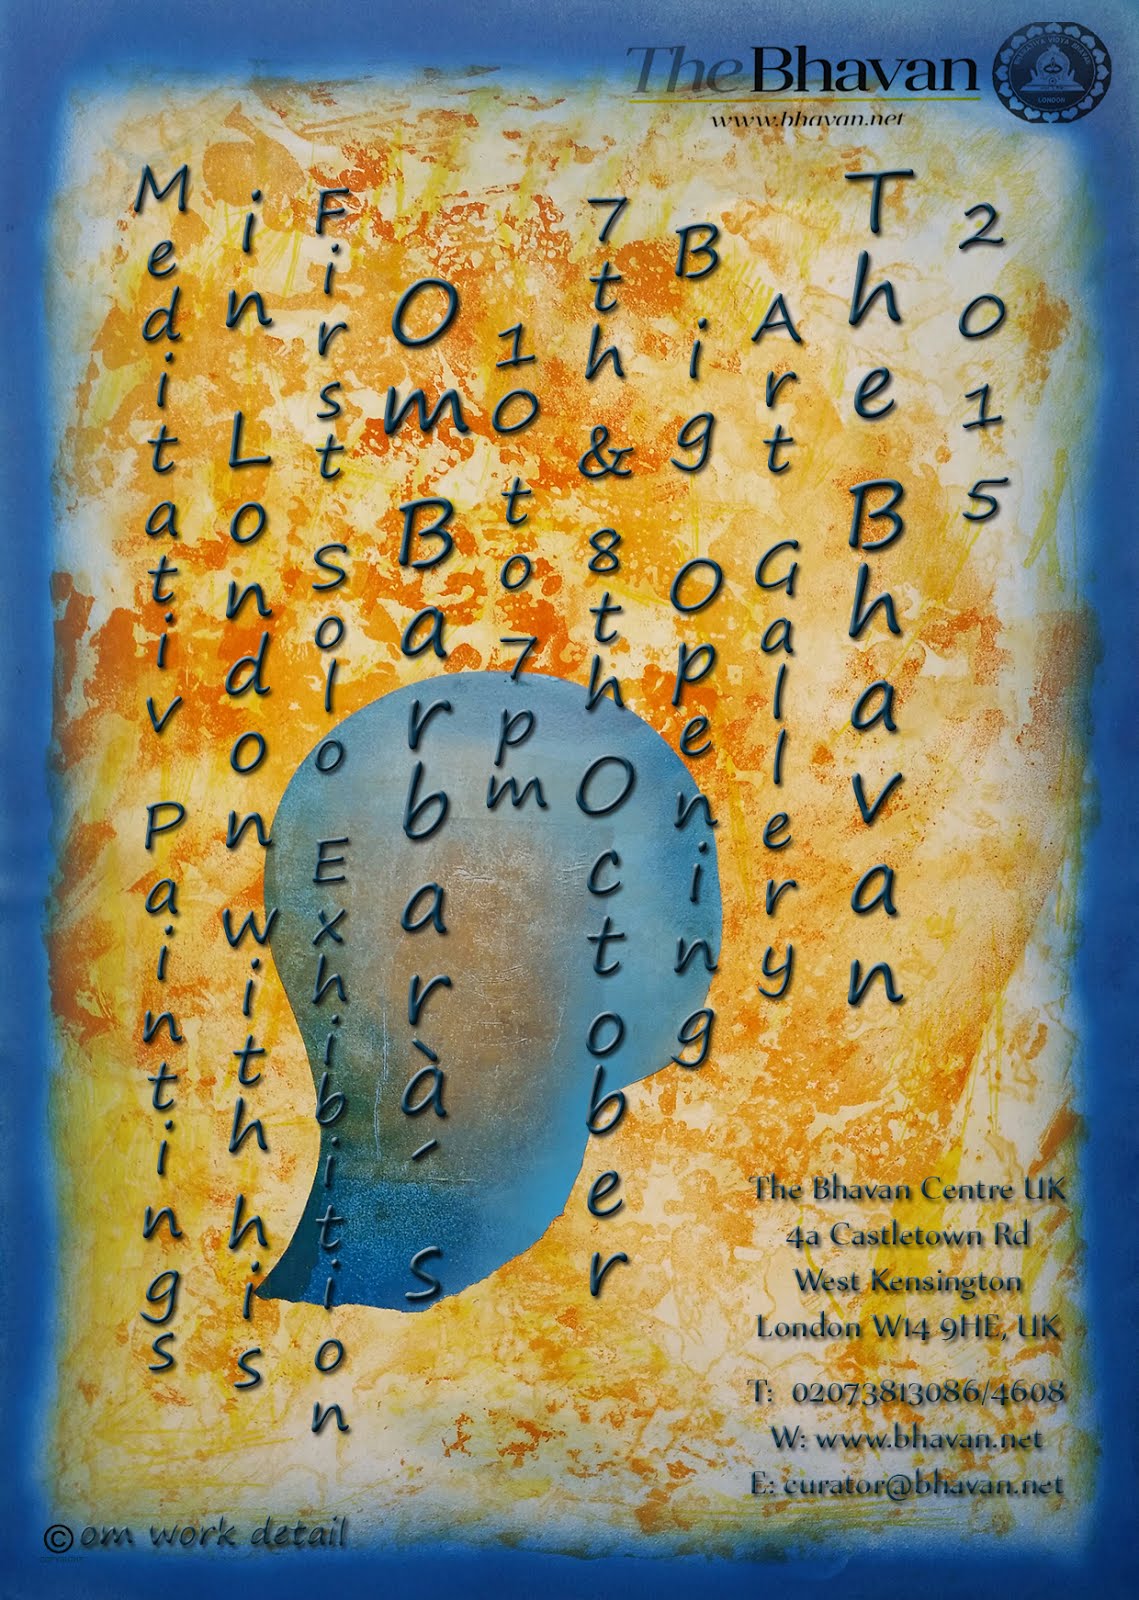 The Bhavan
www.bhavan.net
BHARATIYA VIDYA BHAVAN
LONDON
2015
The Bhavan
Art Gallery
Big Opening
7th & 8th October
10 to 7 pm
Om Barbarà´s
First Solo Exhibition
in London with his
Meditativ Paintings
The Bhavan Centre UK
4a Castletown Rd
West Kensington
London W14 9HE, UK
T: 02073813086/4608
W: www.bhavan.net
E: curator@bhavan.net
© om work detail